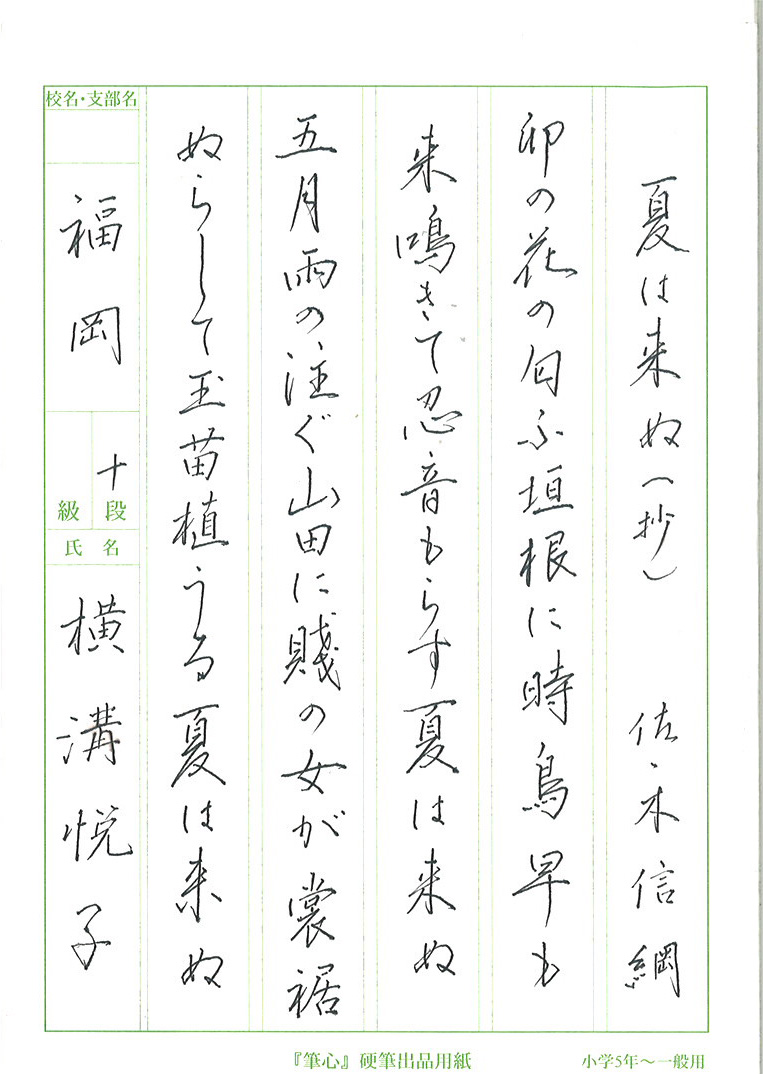 夏は来ぬ(抄) 佐々木信綱
卯の花の匂ふ垣根に時鳥早も
来鳴きて忍音もらす夏は来ぬ
五月雨の注ぐ山田に賤の女が裳裾
ぬらして玉苗植うる夏は来ぬ
校名・支部名
福岡
十段
級
氏名
横溝悦子
『筆心』硬筆出品用紙
小学5年~一般用